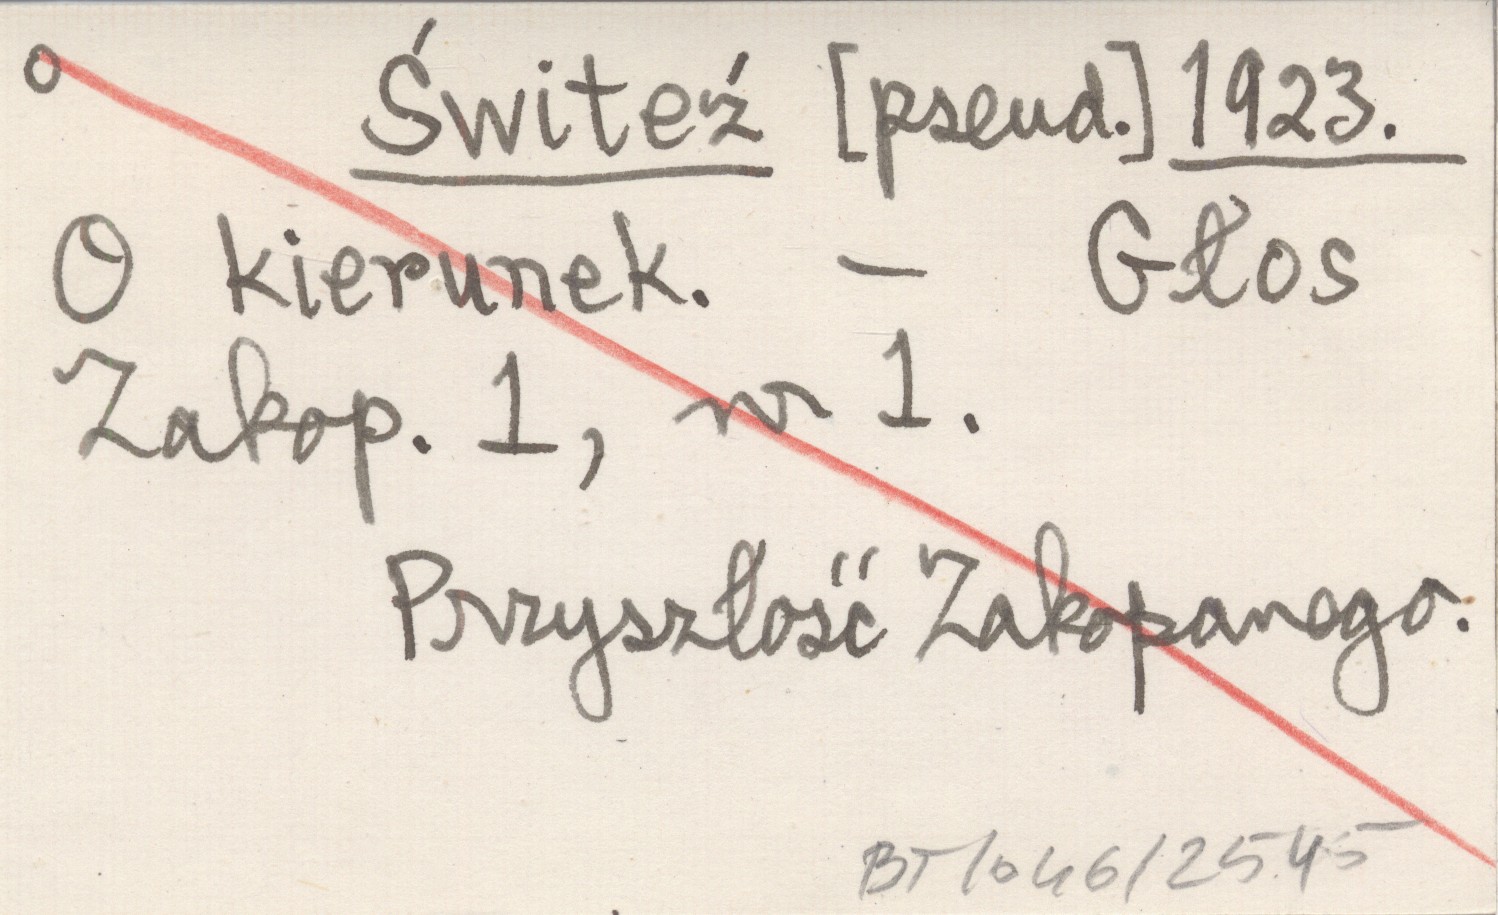 o Świteź [pseud.] 1923.
O kierunek. — Głos
Zakop. 1, nr 1.
Przyszłość Zakopanego.
BT/046/2545